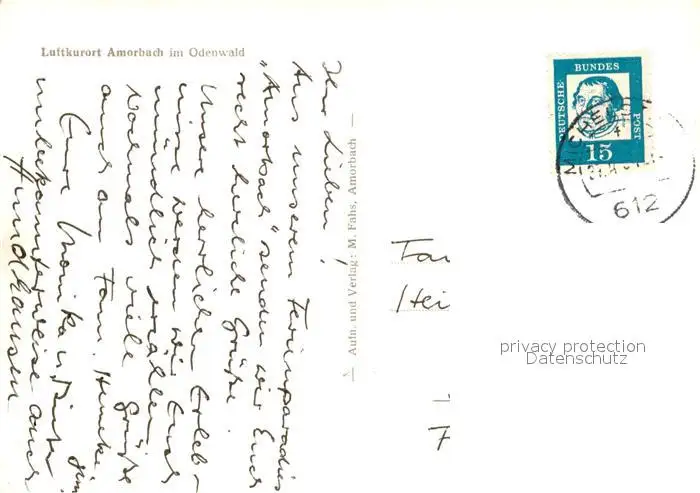 Luftkurort Amorbach im Odenwald
Ihr Lieben!
Aus unserem Ferienparadies
"Amorbach" senden wir Euch
recht herzliche Grüße.
Unsere herrlichen Erleb-
nisse werden wir Euch
mündlich erzählen.
Nochmals viele Grüße
auch an Fam.
Eure Monika u.
unbekannterweise auch
— Aufn. und Verlag: M. Fahs, Amorbach —
DEUTSCHE
BUNDES
POST
15
MICHEL
612
Fa
Hei
F
privacy protection
Datenschutz